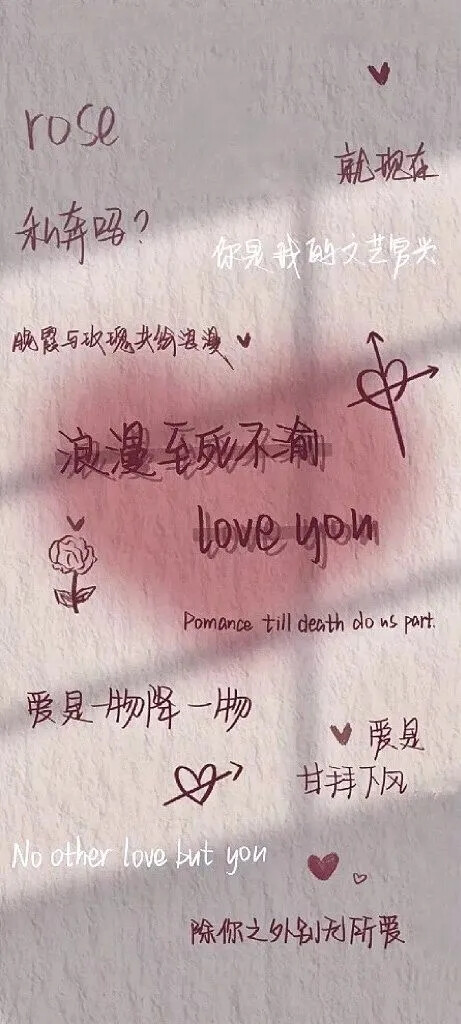 rose
就现在
私奔吗?
你是我的文艺复兴
晚霞与玫瑰共给浪漫
浪漫至死不渝
love you
Pomance till death do us part.
爱是一物降一物
爱是
甘拜下风
No other love but you
除你之外别无所爱